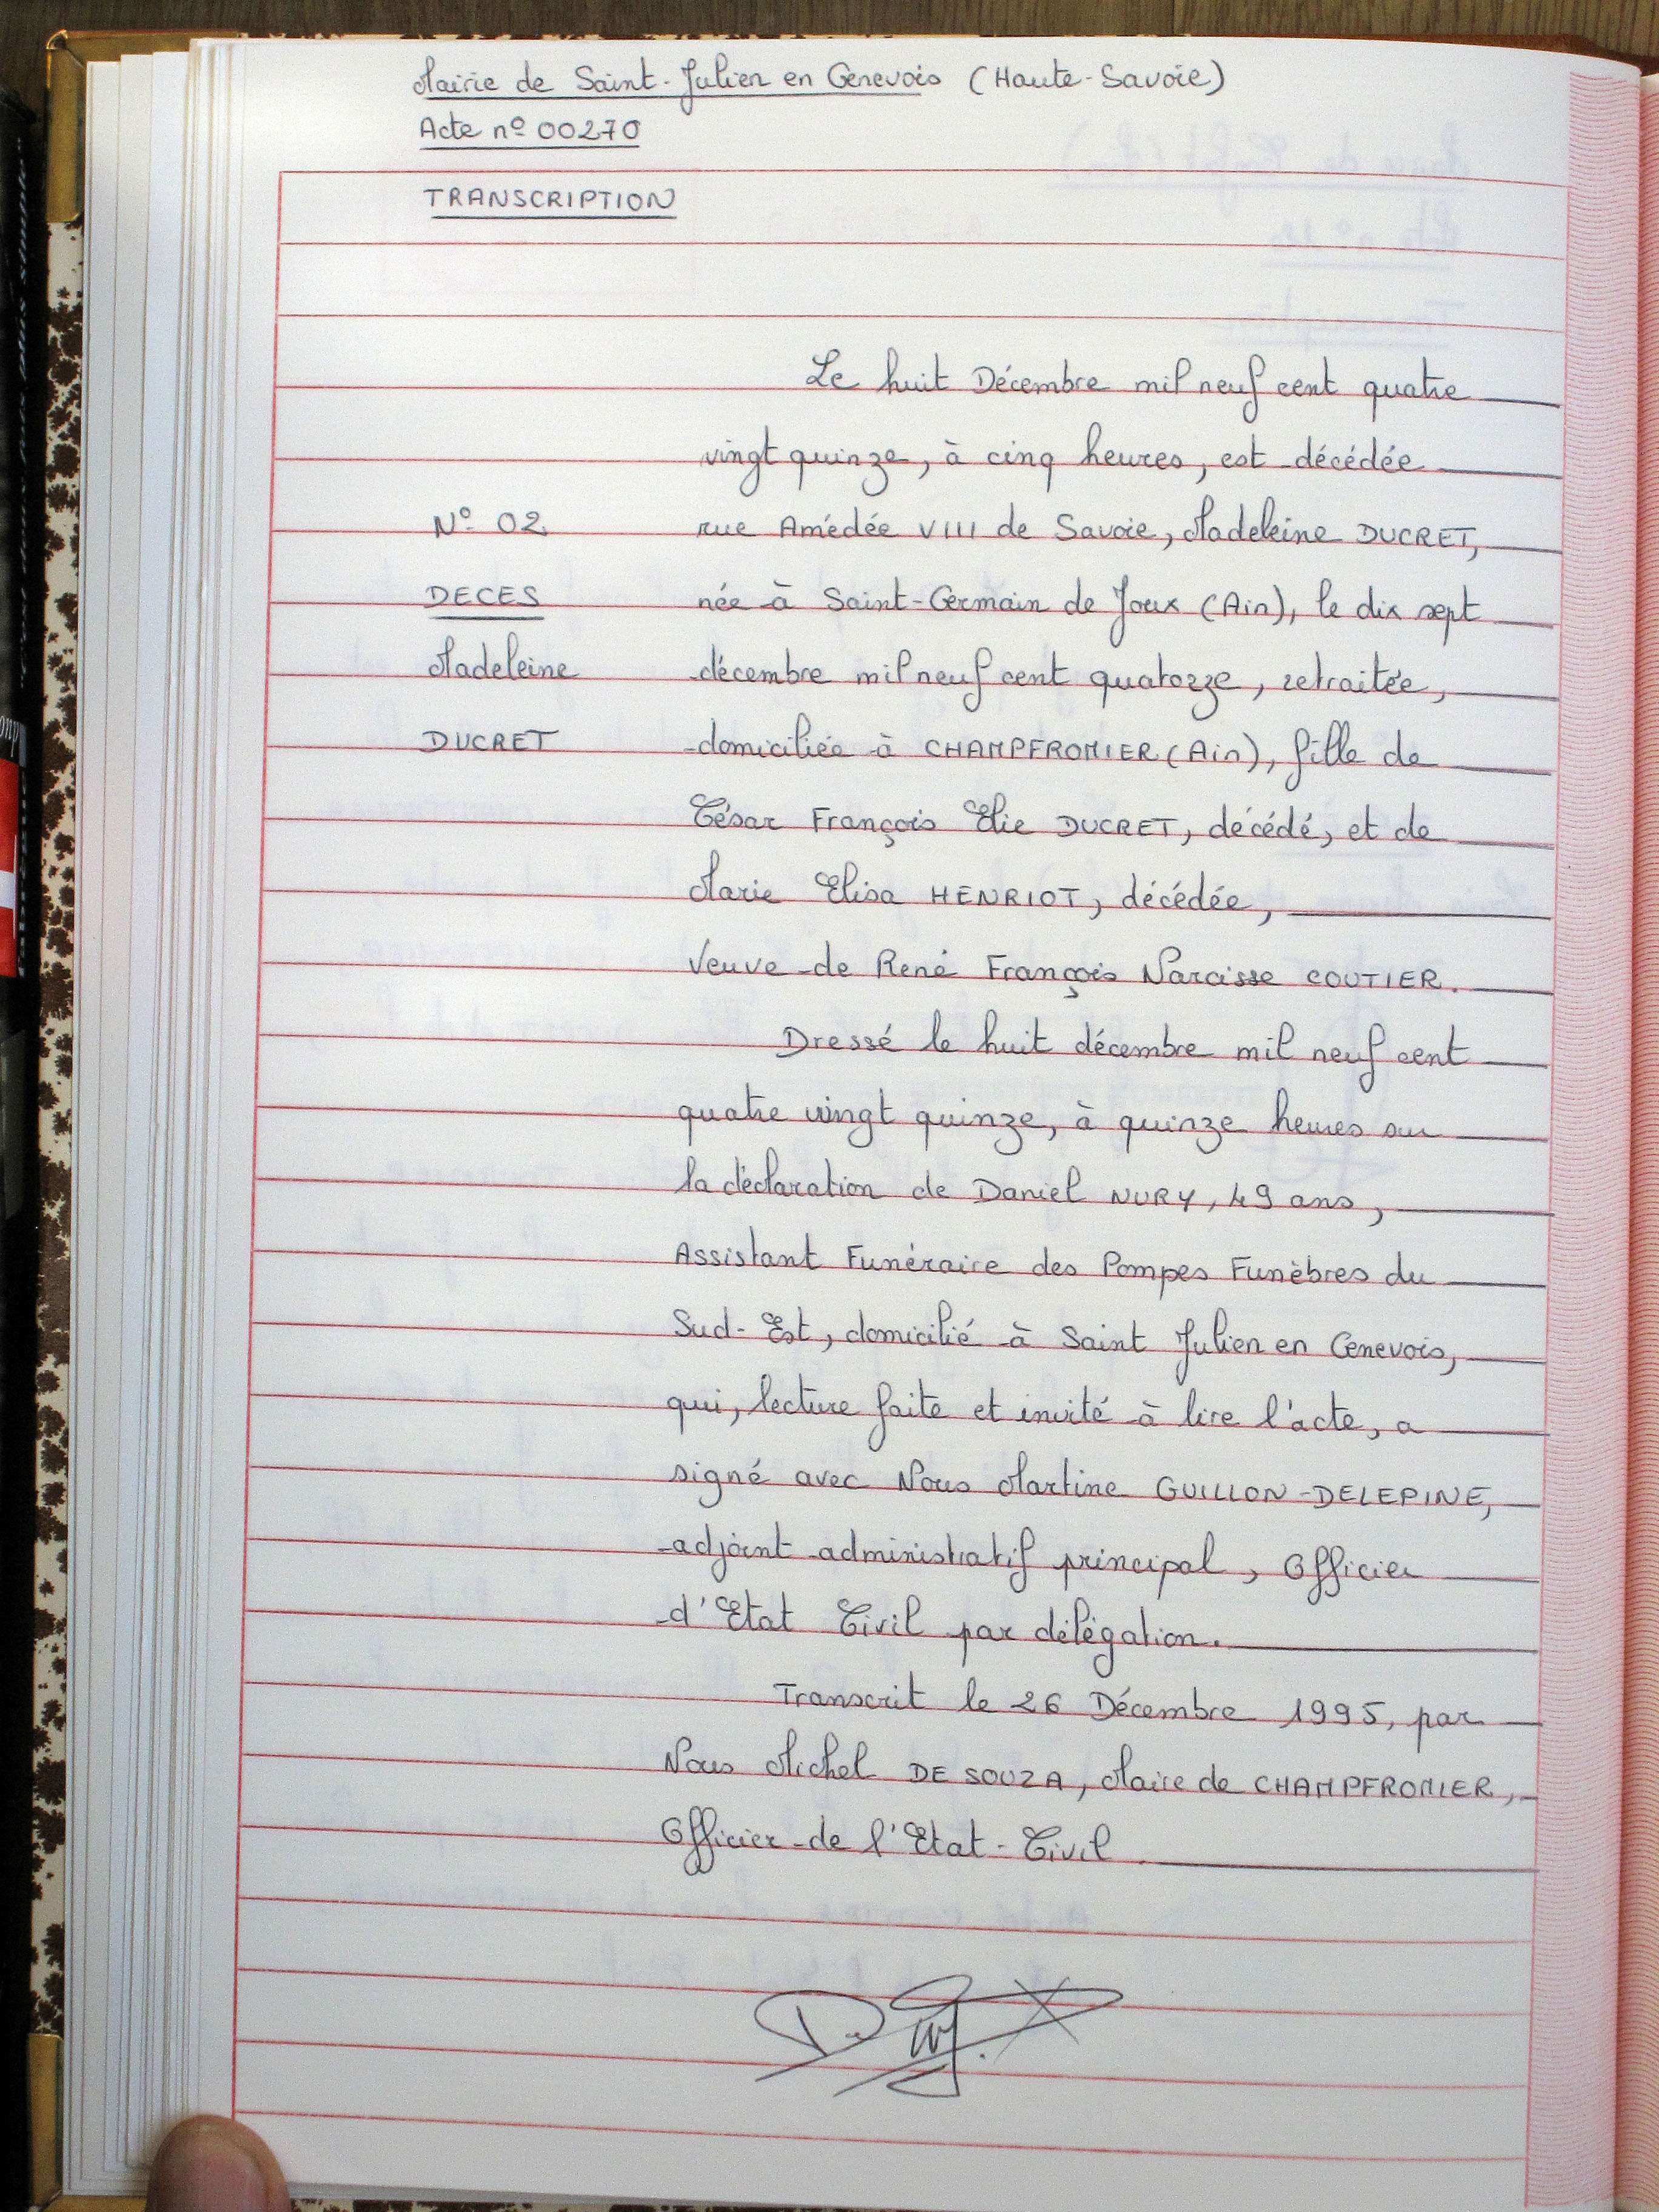 Mairie de Saint-Julien en Genevois (Haute-Savoie)
Acte nº 00270
TRANSCRIPTION
Le huit Décembre mil neuf cent quatre
vingt quinze, à cinq heures, est décédée
Nº 02
rue Amédée VIII de Savoie, Madeleine DUCRET,
DECES
née à Saint-Germain de Joux (Ain), le dix sept
Madeleine
décembre mil neuf cent quatorze, retraitée,
DUCRET
domiciliée à CHAMPFROMIER (Ain), fille de
César François Elie DUCRET, décédé, et de
Marie Elisa HENRIOT, décédée,
Veuve de René François Narcisse COUTIER.
Dressé le huit décembre mil neuf cent
quatre vingt quinze, à quinze heures sur
la déclaration de Daniel NURY, 49 ans,
Assistant Funéraire des Pompes Funèbres du
Sud-Est, domicilié à Saint Julien en Genevois,
qui, lecture faite et invité à lire l'acte, a
signé avec Nous Martine GUILLON-DELEPINE,
adjoint administratif principal, Officier
d'Etat Civil par délégation.
Transcrit le 26 Décembre 1995, par
Nous Michel DE SOUZA, Maire de CHAMPFROMIER,
Officier de l'Etat-Civil